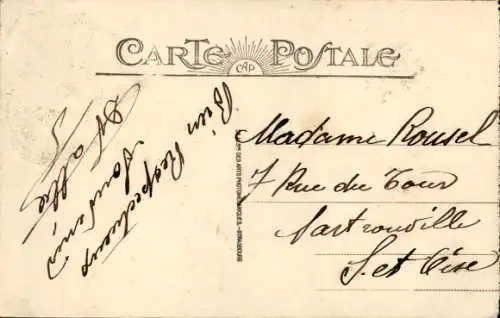 CARTE POSTALE
CAP
Bien Respectueux
Souvenir
Madame Rousel
7 Rue du Tour
Sartrouville
S. et Oise